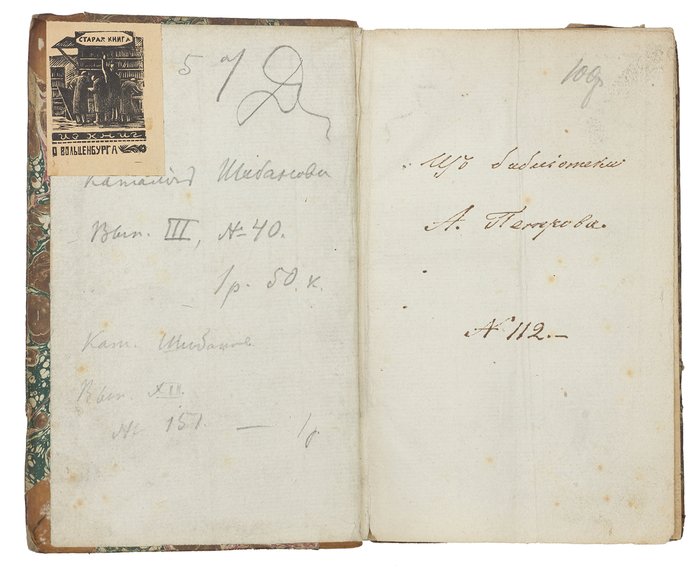 СТАРАЯ КНИГА
ИЗ КНИГ
О ВОЛЬЦЕНБУРГА
5
Каталогъ Шибанова
Вып. III, № 40.
1 р. 50. к.
Кат. Шибанов.
Вып. XIII.
№ 151. — 1 р
Изъ библіотеки
А. Петрова.
№ 112.—